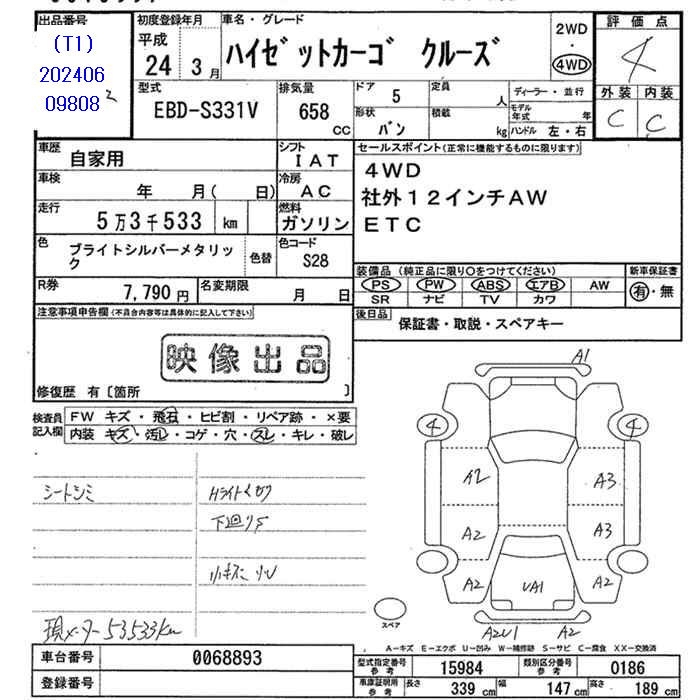 出品番号
(T1)
202406
09808
初度登録年月
平成
24 3月
車名・グレード
ハイゼットカーゴ クルーズ
2WD
・
4WD
評価点
4
外装 内装
C C
型式
EBD-S331V
排気量
658
CC
ドア
5
定員
人
形状
バン
積載
kg
ディーラー・並行
モデル年式 年
ハンドル 左・右
車歴
自家用
シフト
IAT
車検
年 月( 日)
冷房
AC
走行
5万3千533 km
燃料
ガソリン
色
ブライトシルバーメタリック
色替
色コード
S28
R券
7,790円
名変期限
月 日
セールスポイント(正常に機能するものに限り)
4WD
社外12インチAW
ETC
装備品 (純正品に限り○をつけてください)
PS PW ABS エアB AW
SR ナビ TV カワ
新車保証書
有・無
後日品
保証書・取説・スペアキー
注意事項申告欄(不具合内容等は具体的に記入して下さい)
映像出品
修復歴 有〔箇所 〕
検査員記入欄
FW キズ・飛石・ヒビ割・リペア跡・×要
内装 キズ・汚レ・コゲ・穴・スレ・キレ・破レ
シートシミ
Hライトくもり
下廻りS
小キズ
現メーター53533km
A1
4 4
A2 A3
A2 A3
A2 UA1 A2
A2U1 A2
スペア
A-キズ E-エクボ U-凹み W-補修跡 S-サビ C-腐食 XX-交換済
車台番号
0068893
登録番号
型式指定番号 参考
15984
類別区分番号 参考
0186
車庫証明用 参考
長さ 339 cm
幅 147 cm
高さ 189 cm